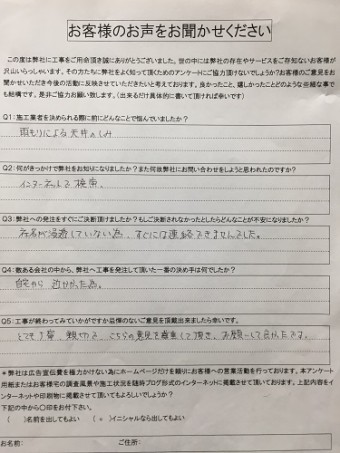 お客様のお声をお聞かせください
この度は弊社に工事をご用命頂き誠にありがとうございました。世の中には弊社の存在やサービスをご存知ないお客様が
沢山いらっしゃいます。その方たちに弊社をよく知って頂くためのアンケートにご協力頂けないでしょうか?お客様のご意見をお
聞かせいただき今後の活動に反映させていただきたいと考えております。良かったこと、嬉しかったことどのような些細な事で
も結構です。是非ご協力お願い致します。(出来るだけ具体的に書いて頂ければ幸いです)
Q1:施工業者を決められる際に前にどんなことで悩んでいましたか?
雨もりによる天井のしみ
Q2:何がきっかけで弊社をお知りになりましたか?また何故弊社にお問い合わせをしようと思われたのですか?
インターネットで検索。
Q3:弊社への発注をすぐにご決断頂けましたか?もしご決断されなかったとしたらどんなことが不安になりましたか?
社名が浸透していない為、すぐには連絡できませんでした。
Q4:数ある会社の中から、弊社へ工事を発注して頂いた一番の決め手は何でしたか?
自宅から近かった為。
Q5:工事が終わってみていかがですか忌憚のないご意見を頂戴出来ましたら幸いです。
とても丁寧、親切で、こちらの意見を尊重して頂き、お願いして良かったです。
*弊社は広告宣伝費を極力かけない為にホームページだけを頼りにお客様への営業活動を行っております。本アンケート
用紙またはお客様宅の調査風景や施工状況を随時ブログ形式のインターネットに掲載させて頂いております。上記内容をイ
ンターネットや印刷物に掲載させて頂いてもよろしいでしょうか?
下記の中から○印をお付け下さい。
( )名前を出してもよい ( ○ )イニシャルなら出してもよい
お名前: ご住所: